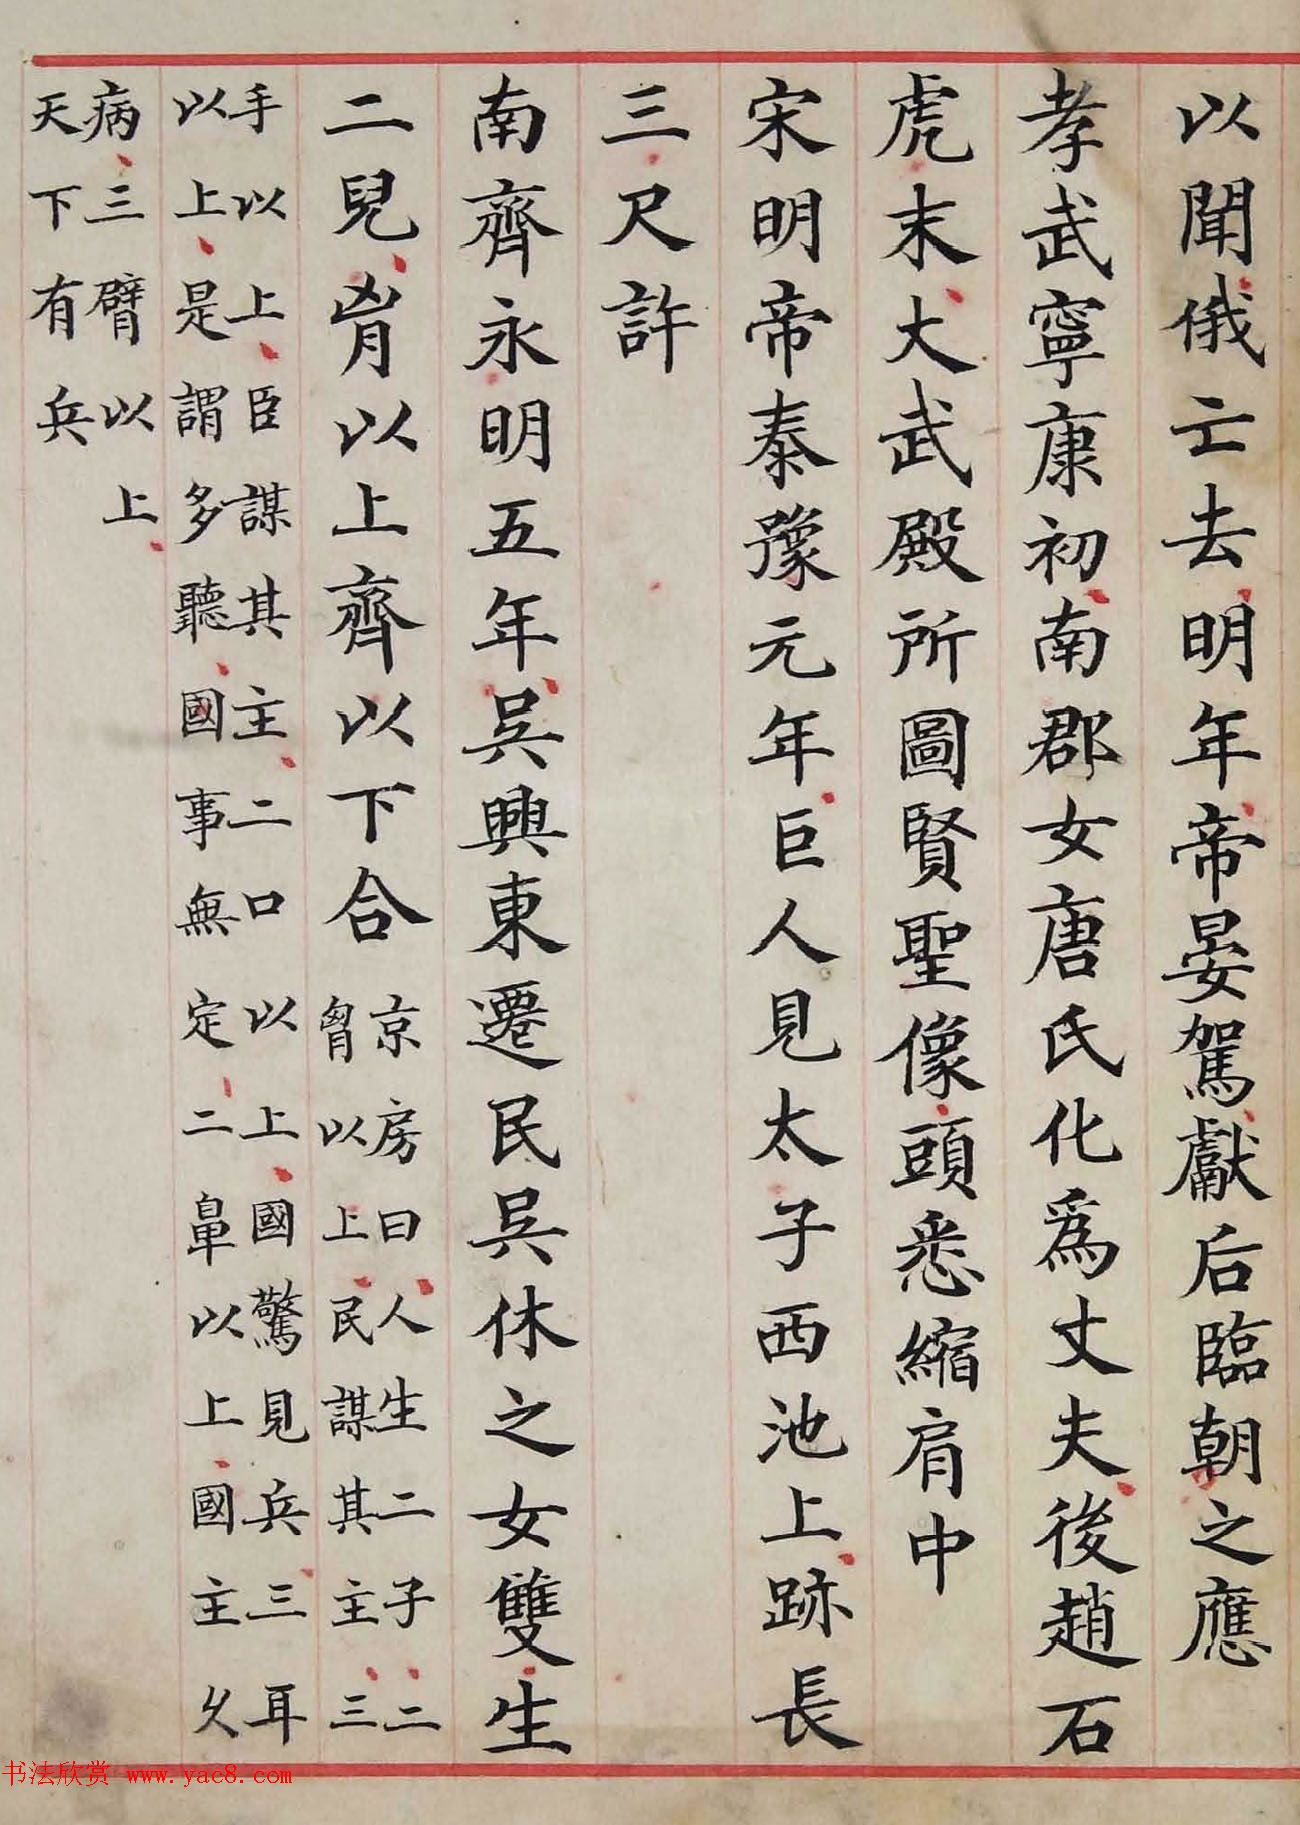 以聞俄亡去明年帝晏駕獻后臨朝之應
孝武寧康初南郡女唐氏化爲丈夫後趙石
虎末大武殿所圖賢聖像頭悉縮肩中
宋明帝泰豫元年巨人見太子西池上跡長
三尺許
南齊永明五年吳興東遷民吳休之女雙生
二兒胷以上齊以下合
京房曰人生二子二
胷以上民謀其主三
手以上臣謀其主二口以上國驚見兵三耳
以上是謂多聽國事無定二鼻以上國主久
病三臂以上
天下有兵
书法欣赏 www.yac8.com